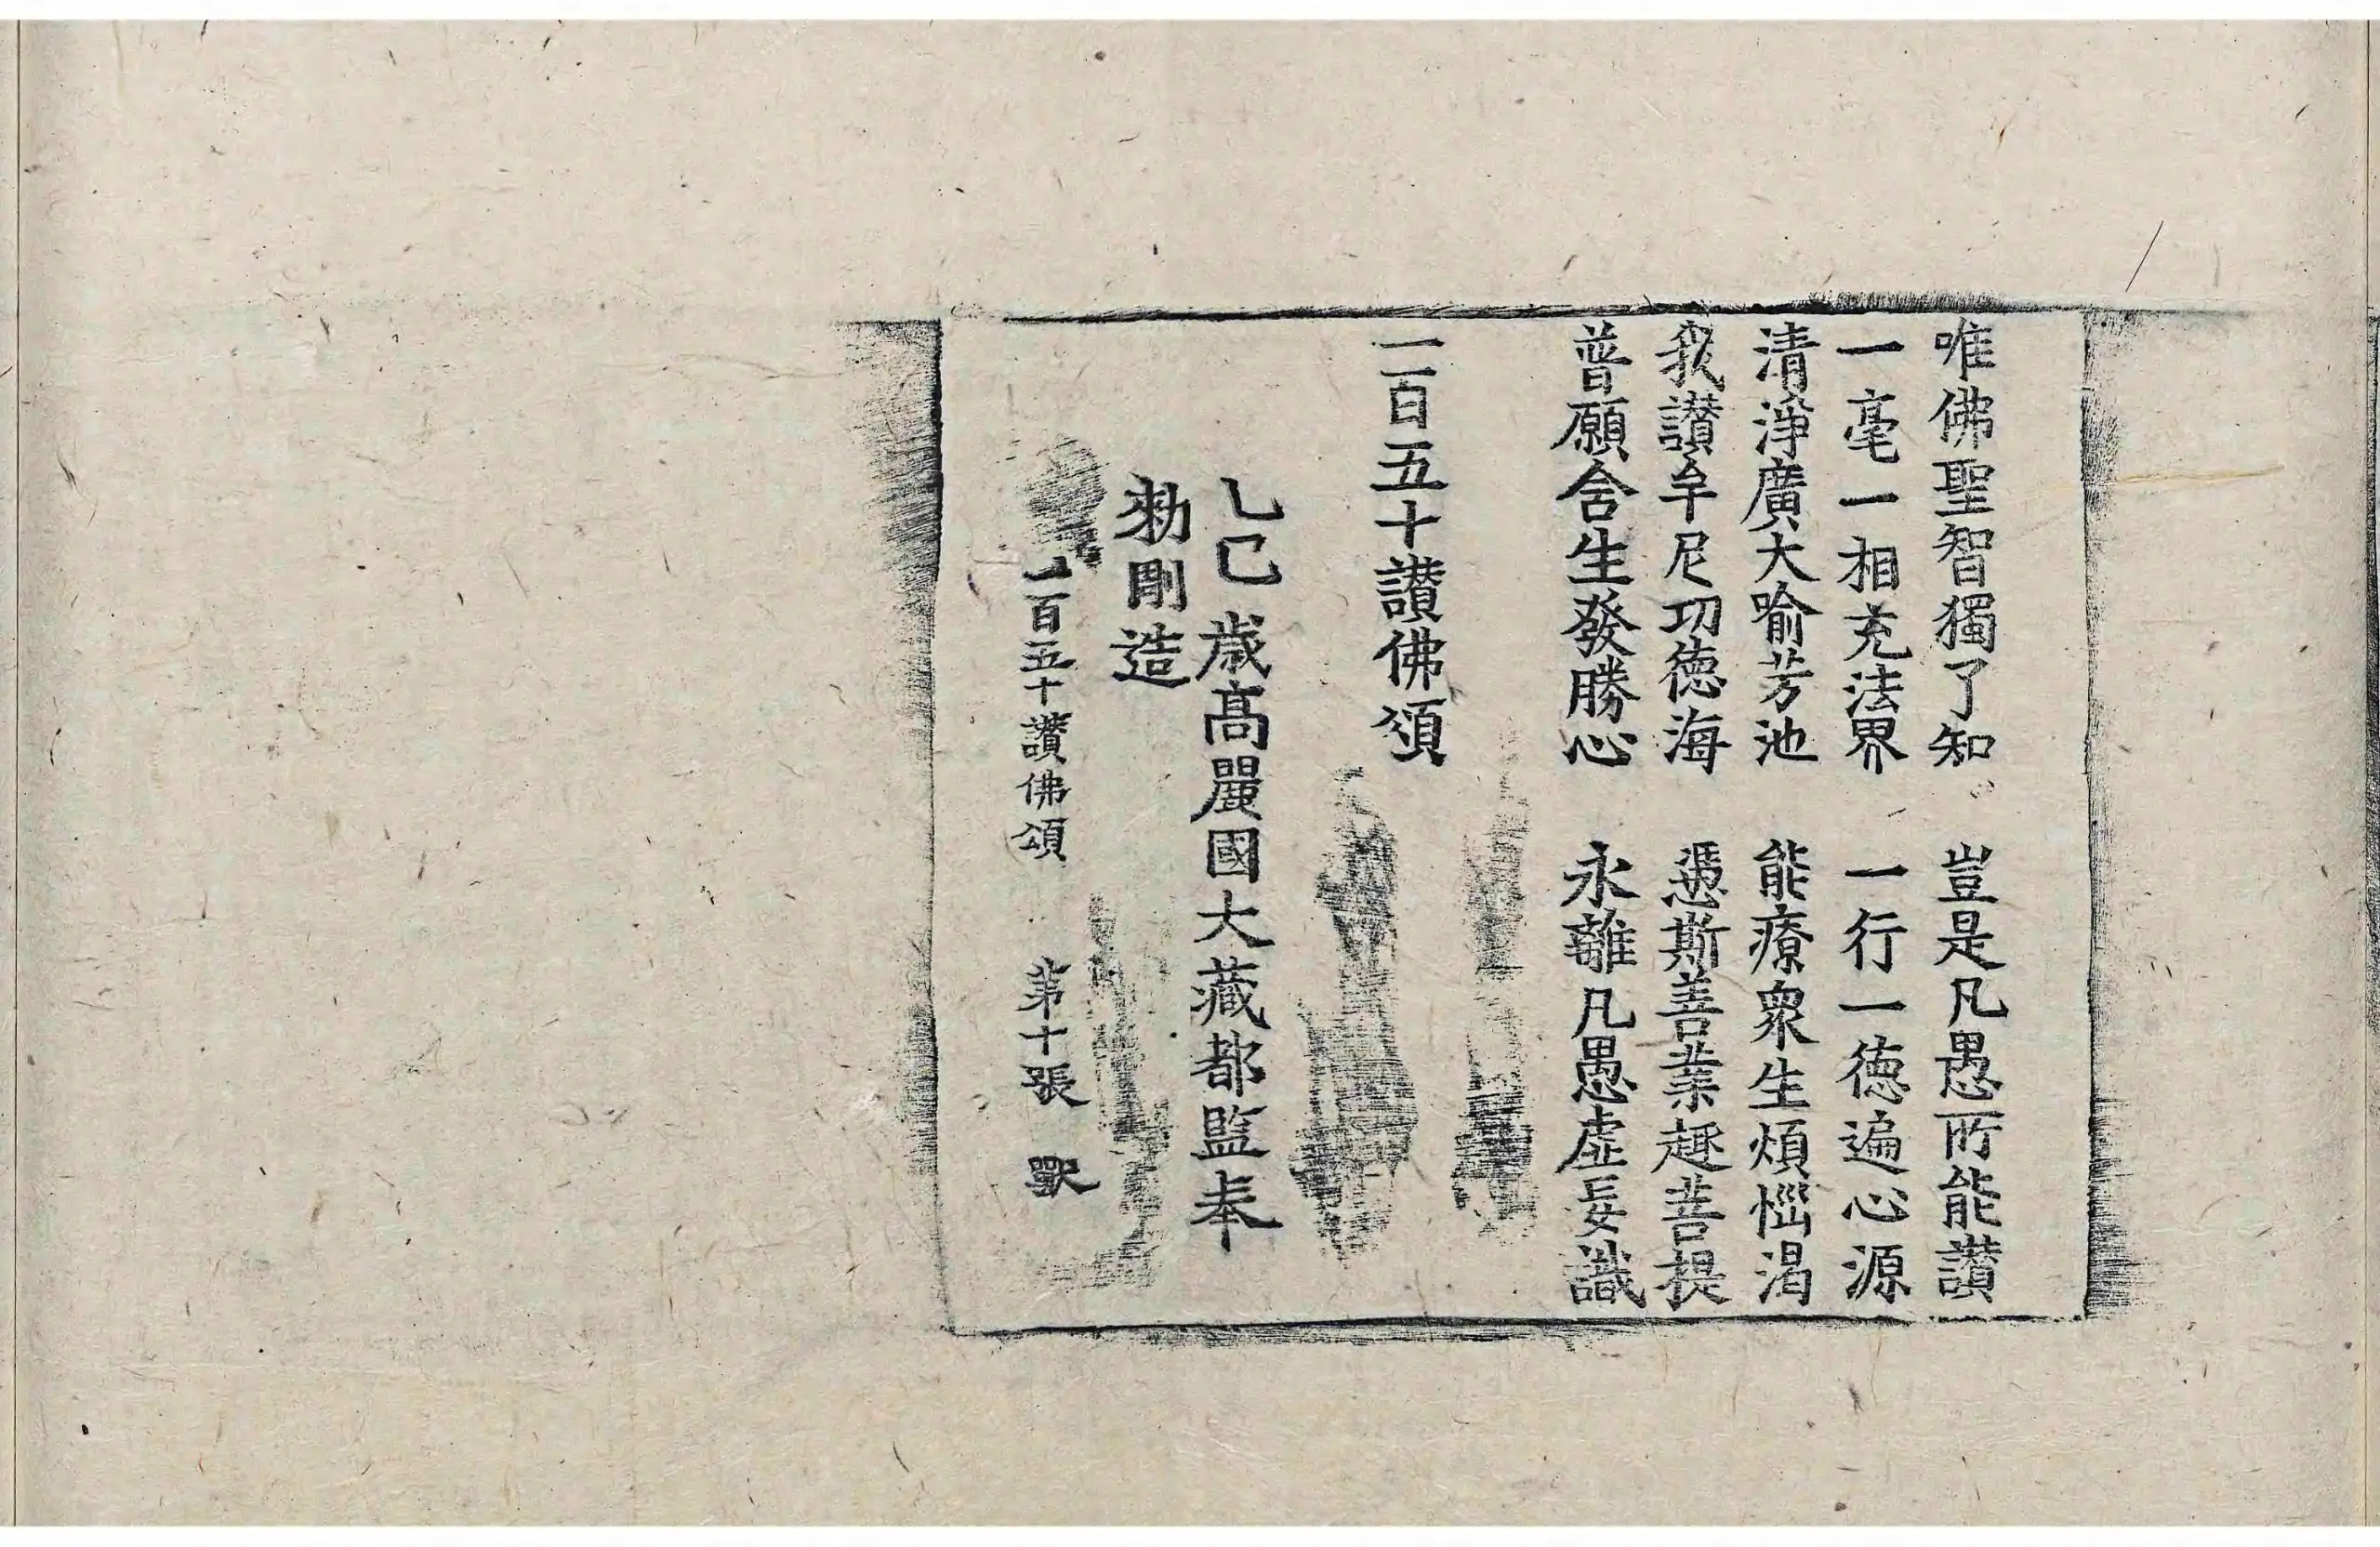 唯佛聖智獨了知 豈是凡愚所能讃
一毫一相充法界 一行一德遍心源
清淨廣大喻芳池 能療衆生煩惱渴
我讃牟尼功德海 憑斯善業趣菩提
普願含生發勝心 永離凡愚虛妄識
一百五十讃佛頌
乙巳歲高麗國大藏都監奉
勑彫造
一百五十讃佛頌 第十張 獸